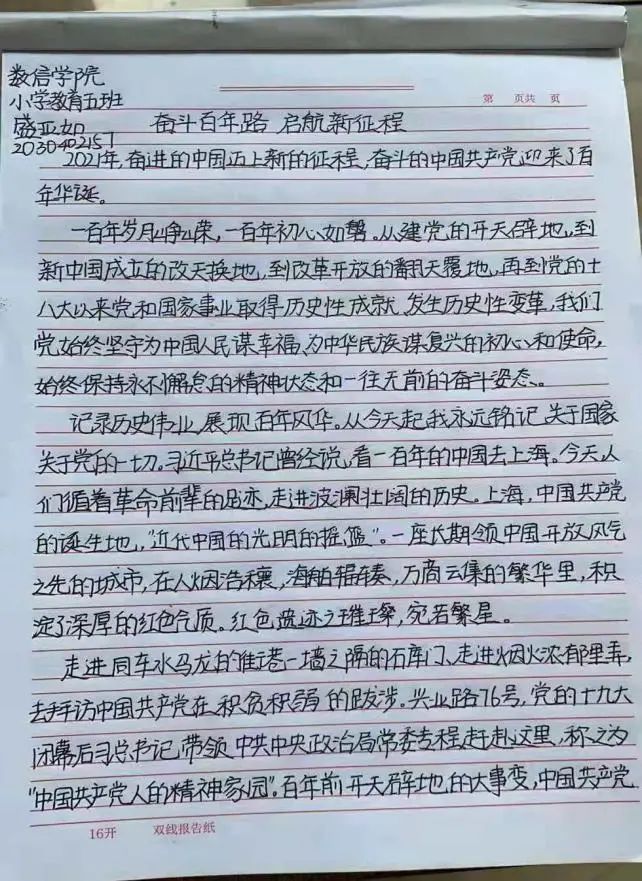 数信学院
小学教育五班
盛亚如
2030402157
第 页共 页
奋斗百年路 启航新征程
2021年,奋进的中国迈上新的征程,奋斗的中国共产党迎来了百
年华诞。
一百年岁月峥嵘,一百年初心如磐。从建党的开天辟地,到
新中国成立的改天换地,到改革开放的翻天覆地,再到党的十
八大以来党和国家事业取得历史性成就、发生历史性变革,我们
党始终坚守为中国人民谋幸福、为中华民族谋复兴的初心和使命,
始终保持永不懈怠的精神状态和一往无前的奋斗姿态。
记录历史伟业,展现百年风华。从今天起我永远铭记关于国家
关于党的一切。习近平总书记曾经说,看一百年的中国去上海。今天人
们循着革命前辈的足迹,走进波澜壮阔的历史。上海,中国共产党
的诞生地,"近代中国的光明的摇篮"。一座长期领中国开放风气
之先的城市,在人烟浩穰,海舶辐辏,万商云集的繁华里,积
淀了深厚的红色气质。红色遗迹之璀璨,宛若繁星。
走进同车水马龙的淮海一墙之隔的石库门、走进烟火浓郁里弄,
去拜访中国共产党在积贫积弱的跋涉。兴业路76号,党的十九大
闭幕后习总书记带领中共中央政治局常委专程赶赴这里,称之为
"中国共产党人的精神家园"。百年前开天辟地的大事变,中国共产党
16开 双线报告纸